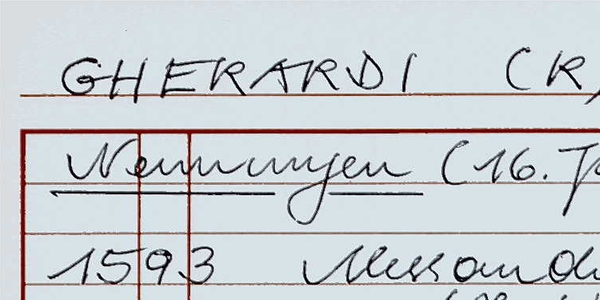 GHERARDI (R
Nennungen (16. J
1593 Alessand